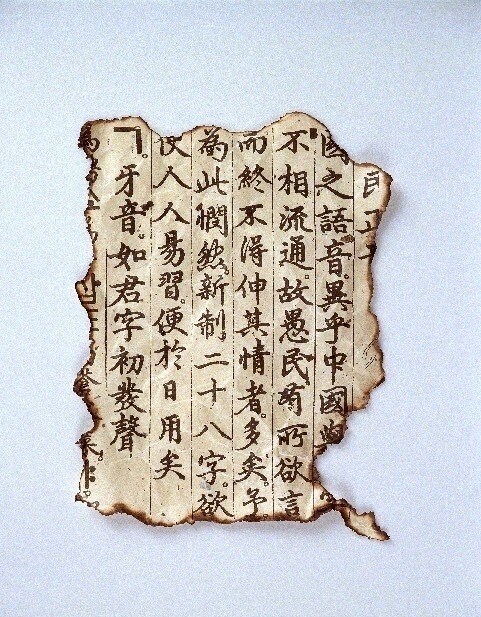 民正
國之語音。異乎中國
不相流通。故愚民有所欲言
而終不得伸其情者。多矣。予
為此憫然。新制二十八字。欲
使人人易習。便於日用矣
ㄱ。牙音。如君字初發聲